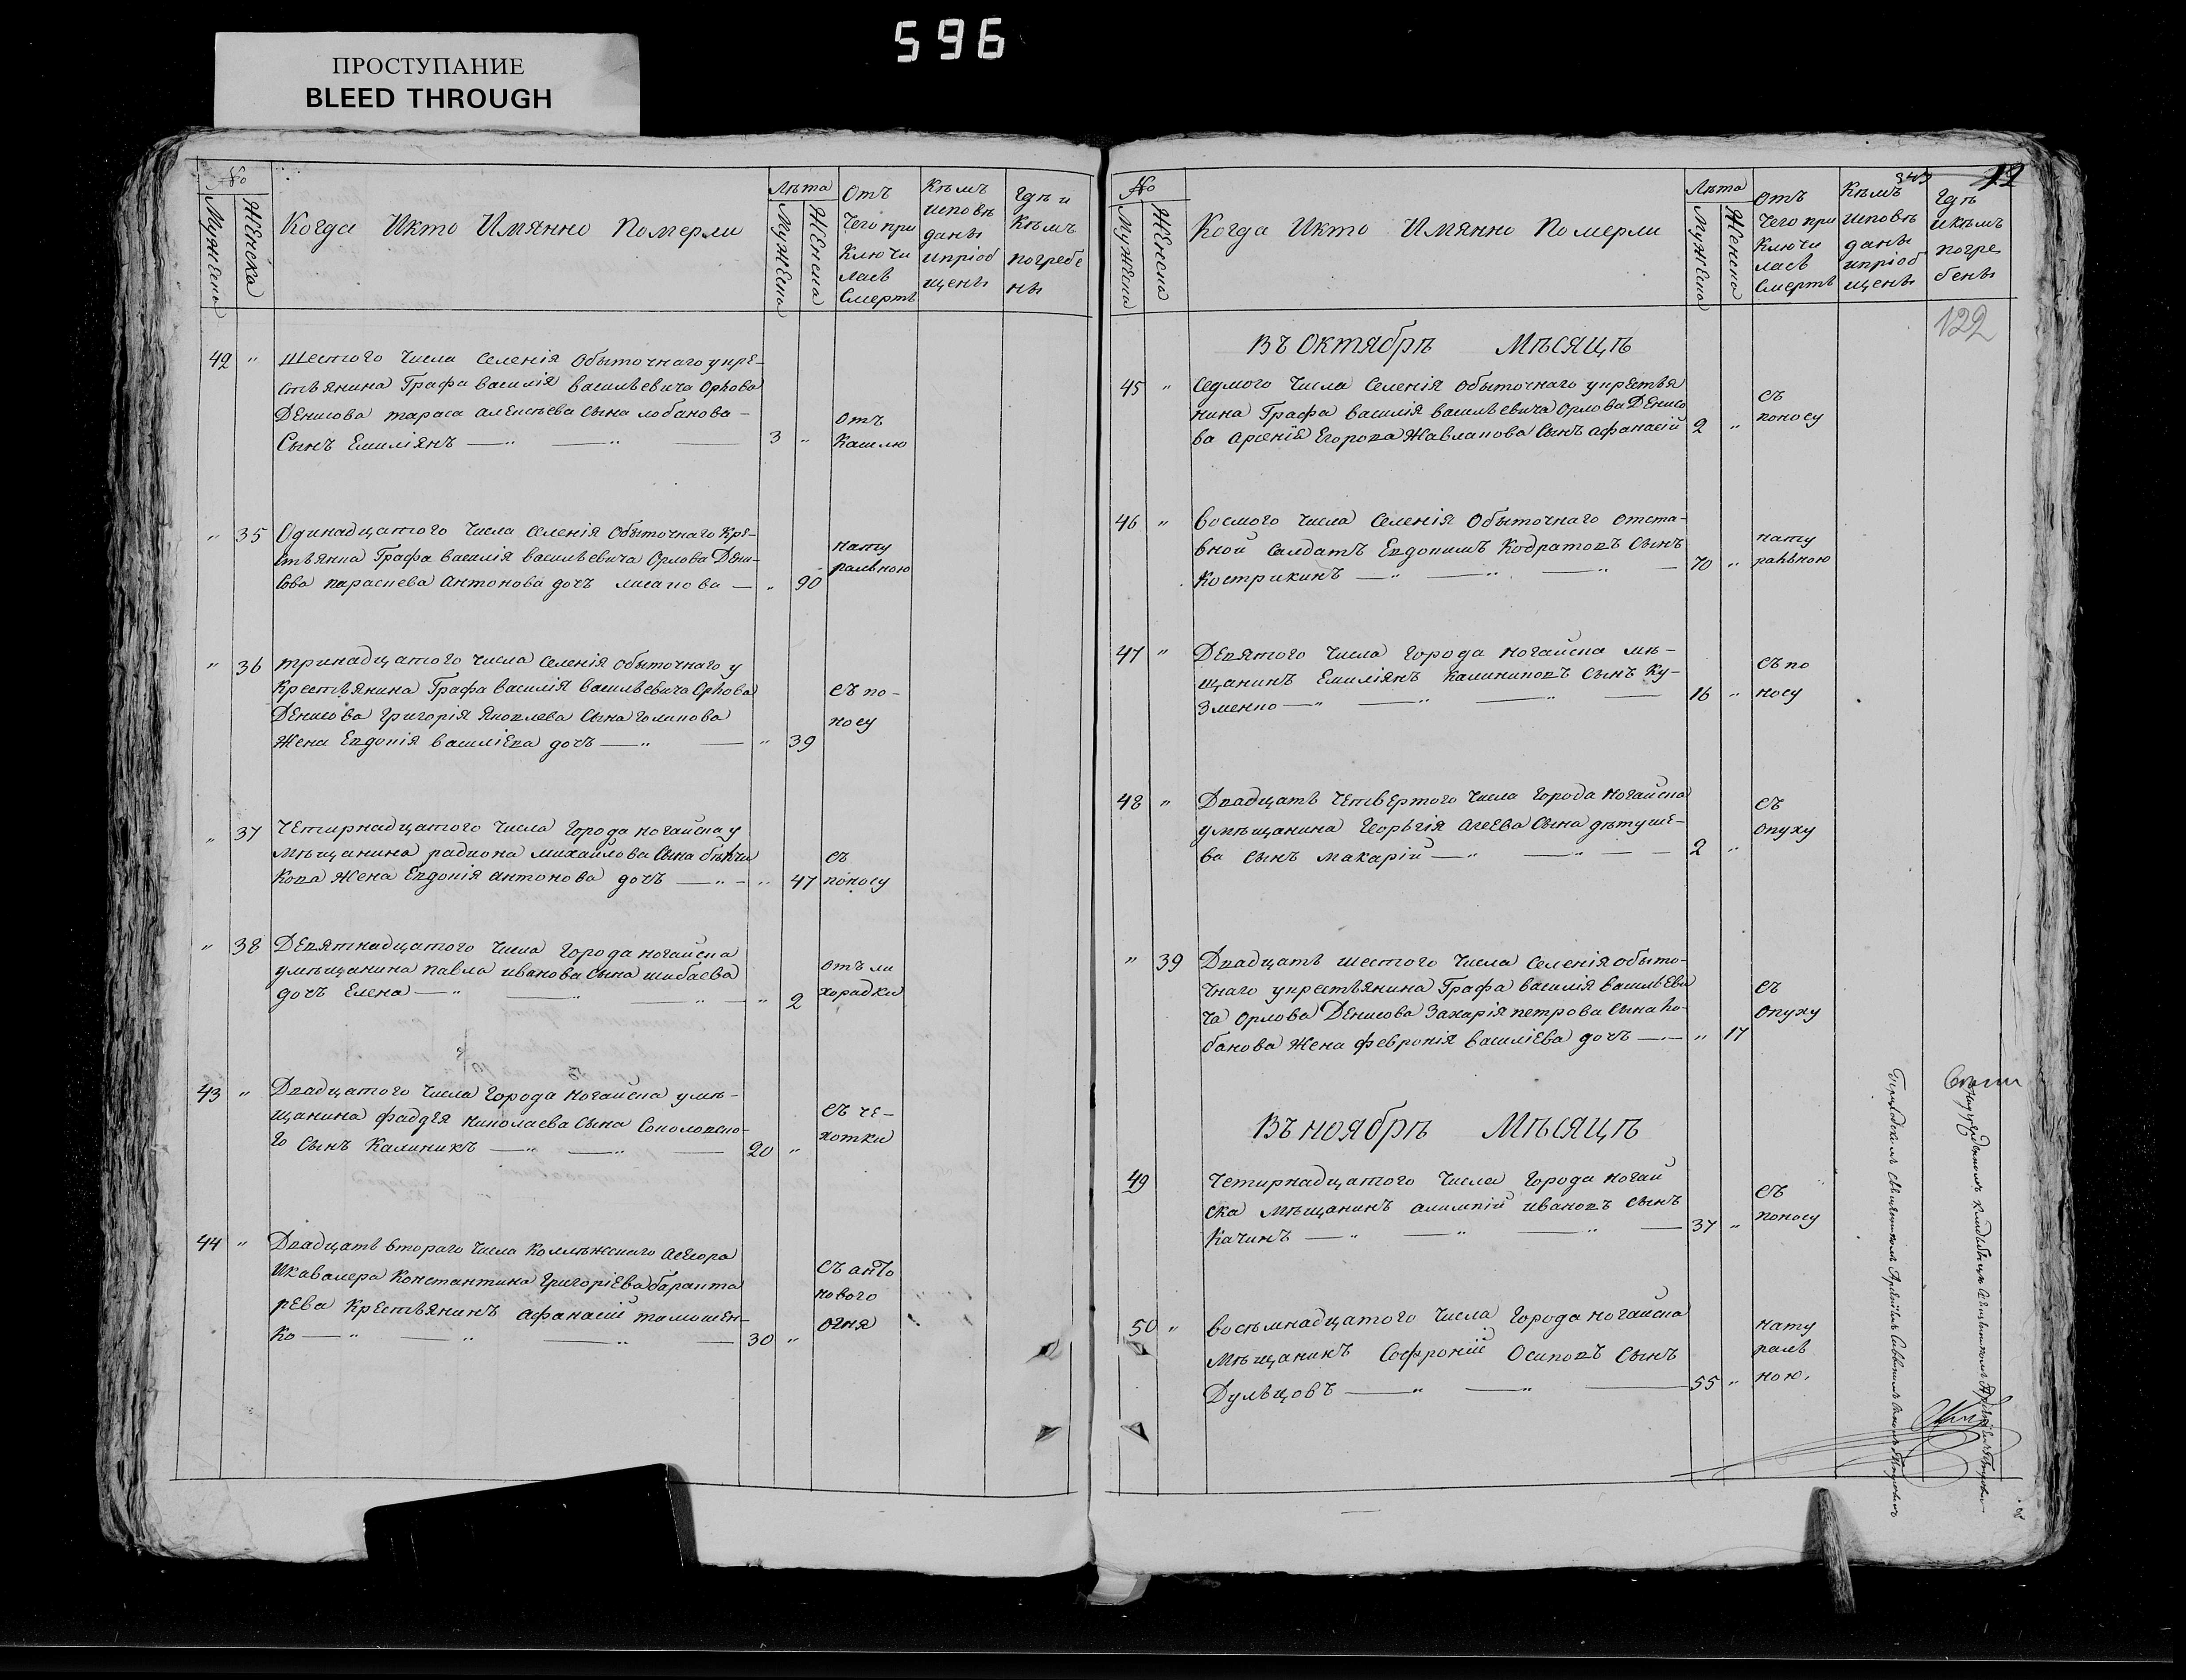 596
ПРОСТУПАНИЕ
BLEED THROUGH
№
Мужеска
Женска
Когда Икто Имянно Померли
Лѣта
Мужеска
Женска
Отъ
Чего при
Ключи
лась
Смерть
Кѣмъ
исповѣ
даны
ипріоб
щены
Гдѣ и
Кѣмъ
погребе
ны
42 " Шестого Числа Селенія Обыточнаго укре-
стьянина Графа василія васильевича Орлова
Денисова тараса алексѣева сына лобанова -
Сынъ Емиліянъ 3 "
отъ
Кашлю
" 35 Одинадцатого Числа Селенія Обыточнаго Кре-
стьянка Графа василія васильевича Орлова Дени-
сова параскева Антонова дочь лисанова " 90
нату
ральною
" 36 тринадцатого числа селенія обыточнаго у
Крестьянина Графа василія васильевича Орлова
Денисова григорія Яковлева сына голикова
Жена Евдокія василіева дочь " 39
съ по-
носу
" 37 Четирнадцатого Числа Города ногайска у
мѣщанина радиона михайлова сына
кова Жена Евдокія антонова дочь " 47
съ
поносу
" 38 Девятнадцатого Числа Города ногайска
умѣщанина павла иванова сына шибаева
дочь Елена " 2
отъ ли
хорадки
43 " Двадцатого Числа Города Ногайска умѣ-
щанина фаддея николаева сына Соколовско-
го Сынъ Калиникъ 20 "
съ че-
хотки
44 " Двадцать втораго Числа Коллѣжскаго Асесора
Икавалера Константина Григоріева баранта
рева Крестьянинъ Афанасій тимошен-
ко 30 "
Съ анто
нового
огня
№
Мужеска
Женска
Когда Икто Имянно Померли
Лѣта
Мужеска
Женска
отъ
Чего при
Ключи
лась
Смерть
Кѣмъ
исповѣ
даны
ипріоб
щены
Гдѣ
икѣмъ
погре
бены
343
12
122
Въ Октябрѣ Мѣсяцѣ
45 " Седмого Числа Селенія обыточнаго укрестья
нина Графа василія васильевича Орлова Денисо
ва Арсенія Егорова Жавланова Сынъ афанасій 2 "
съ
поносу
46 " восмого Числа Селенія Обыточнаго отста-
вной Салдатъ Евдокимъ Кодратовъ Сынъ
Кострикинъ 70 "
нату
ральною
47 " Девятого Числа города ногайска мѣ-
щанинъ Емиліянъ Калиниковъ Сынъ Ку-
зменко 16 "
съ по
носу
48 " Двадцать Четвертого Числа Города Ногайска
умѣщанина Георьгія Агеева Сына дѣтуше-
ва сынъ макарій 2 "
съ
опуху
" 39 Двадцать шестого Числа Селенія обыто-
чнаго укрестьянина Графа василія васильеви
ча Орлова Денисова Захарія петрова Сына ло-
банова Жена февронія василіева дочь " 17
съ
опуху
Въ ноябрѣ Мѣсяцѣ
49 Четирнадцатого Числа Города ногай
ска Мѣщанинъ алимпій ивановъ Сынъ
Качинъ 37 "
съ
поносу
50 " восьмнадцатого Числа Города ногайска
Мѣщанинъ Софроній Осиповъ Сынъ
Дульцовъ 55 "
нату
раль
ною.